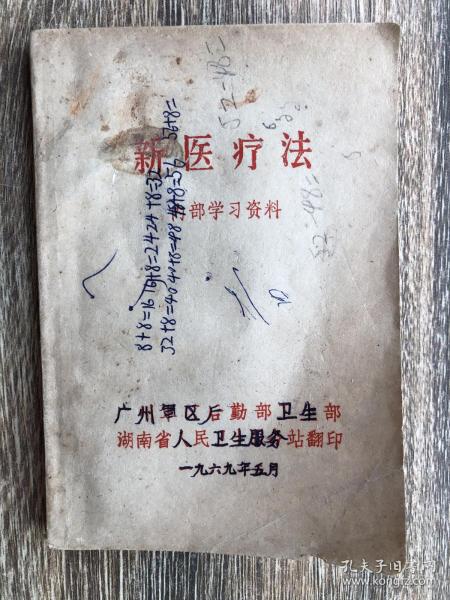 新医疗法
内部学习资料
8+8=16 16+8=24 24+8=32
32+8=40 40+8=48 48+8=56 56+8=
52-48=
广州軍区后勤部卫生部
湖南省人民卫生服务站翻印
一九六九年五月
孔夫子旧书网
www.kongfz.com